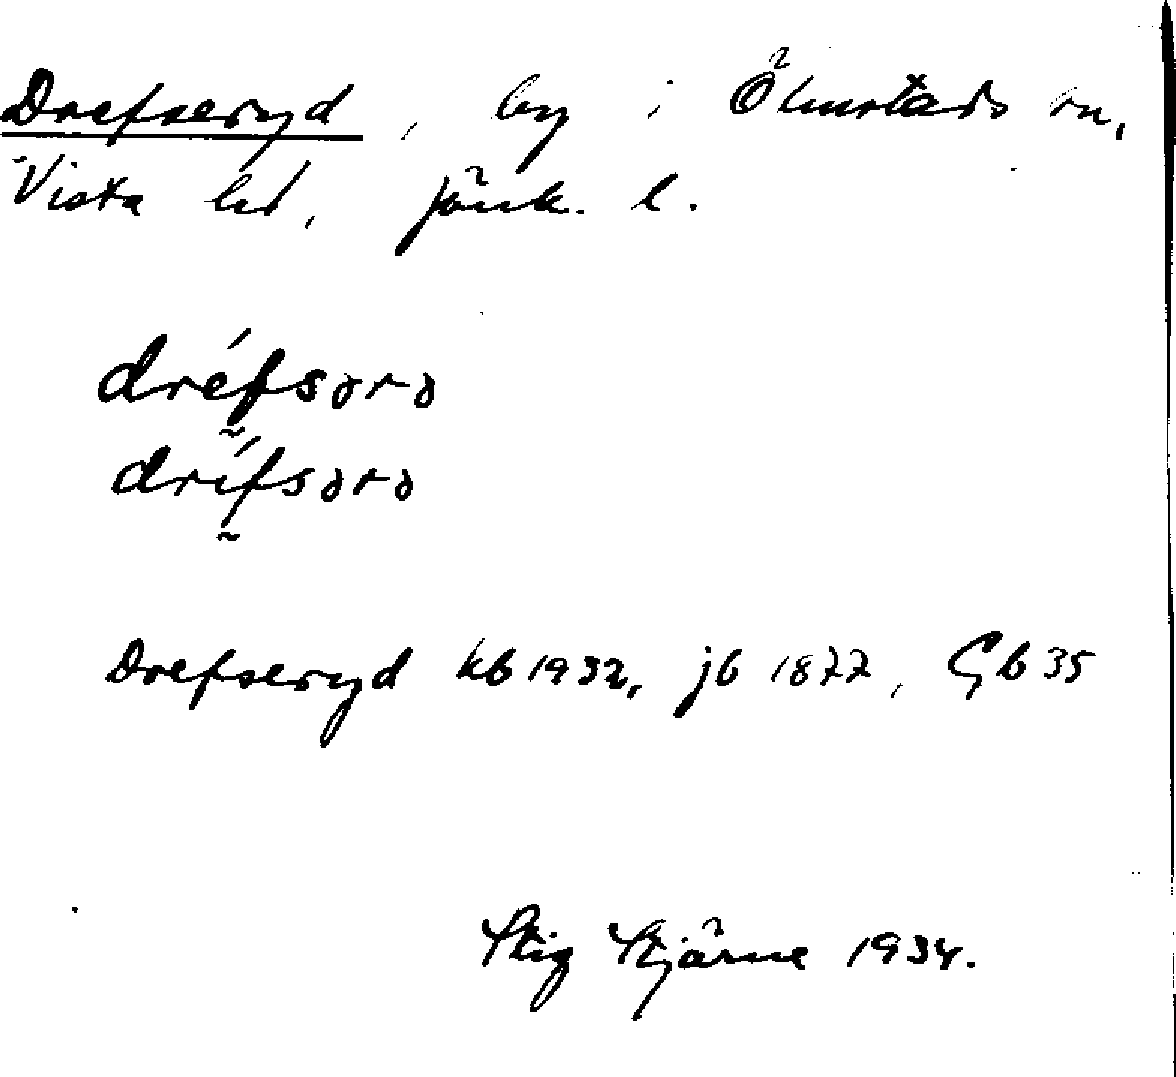 Drefseryd, by i Ölmstads sn,
Vista hd, Jönk. l.
dréfsərə
drífsərə
Drefseryd kb 1932, jb 1877, Gb 35
Stig Stjärne 1934.